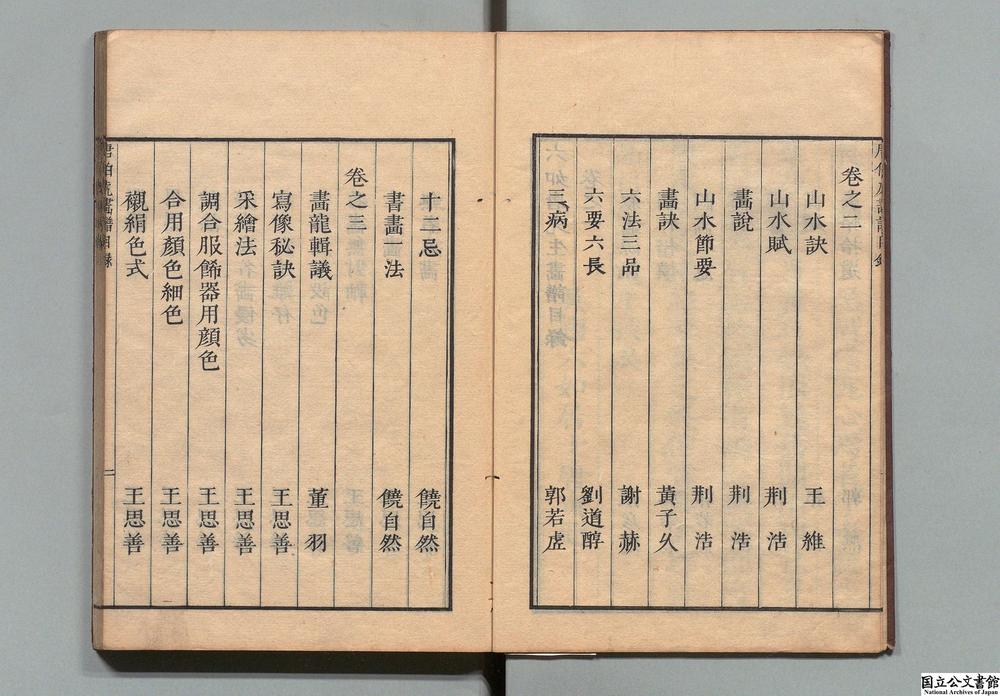 卷之二
山水訣 王維
山水賦 荆浩
畵說 荆浩
山水節要 荆浩
畵訣 黃子久
六法三品 謝赫
六要六長 劉道醇
三病 郭若虛
十二忌 饒自然
書畵一法 饒自然
卷之三
畵龍輯議 董羽
寫像秘訣 王思善
采繪法 王思善
調合服飾器用顔色 王思善
合用顔色細色 王思善
襯絹色式 王思善
唐伯虎畵譜目錄
二
国立公文書館
National Archives of Japan